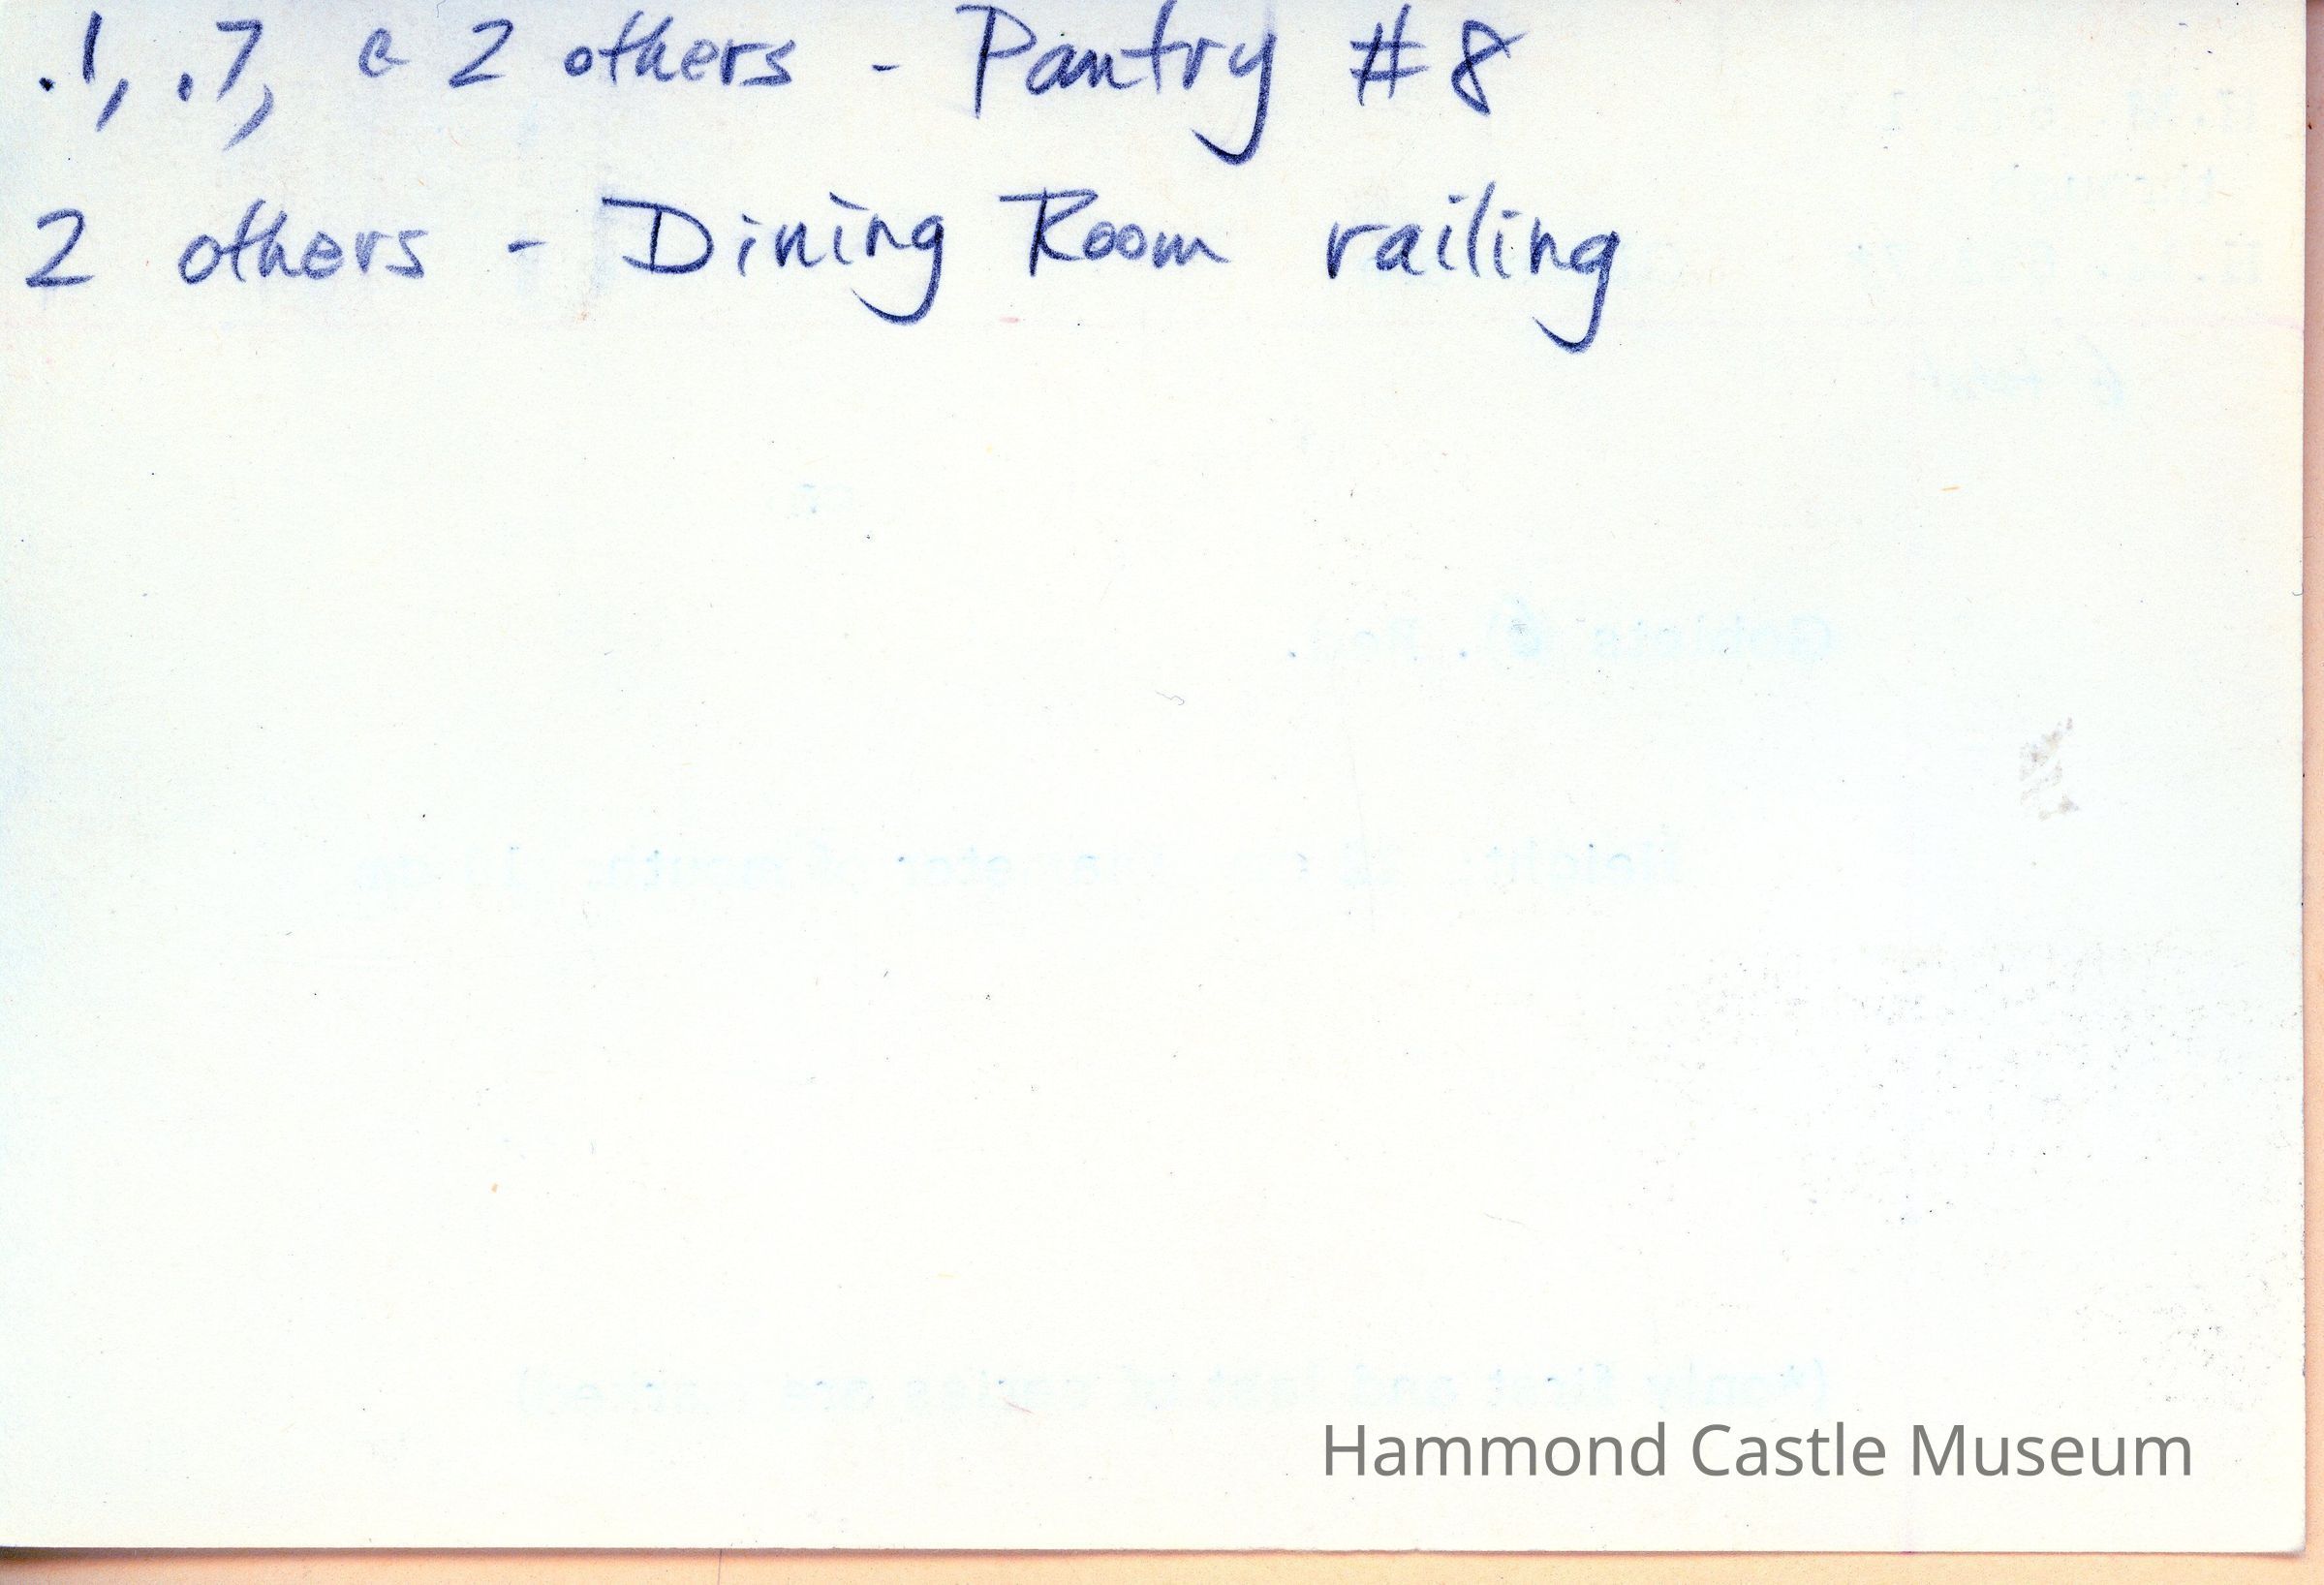 .1, .7, & 2 others - Pantry #8
2 others - Dining Room railing
Hammond Castle Museum